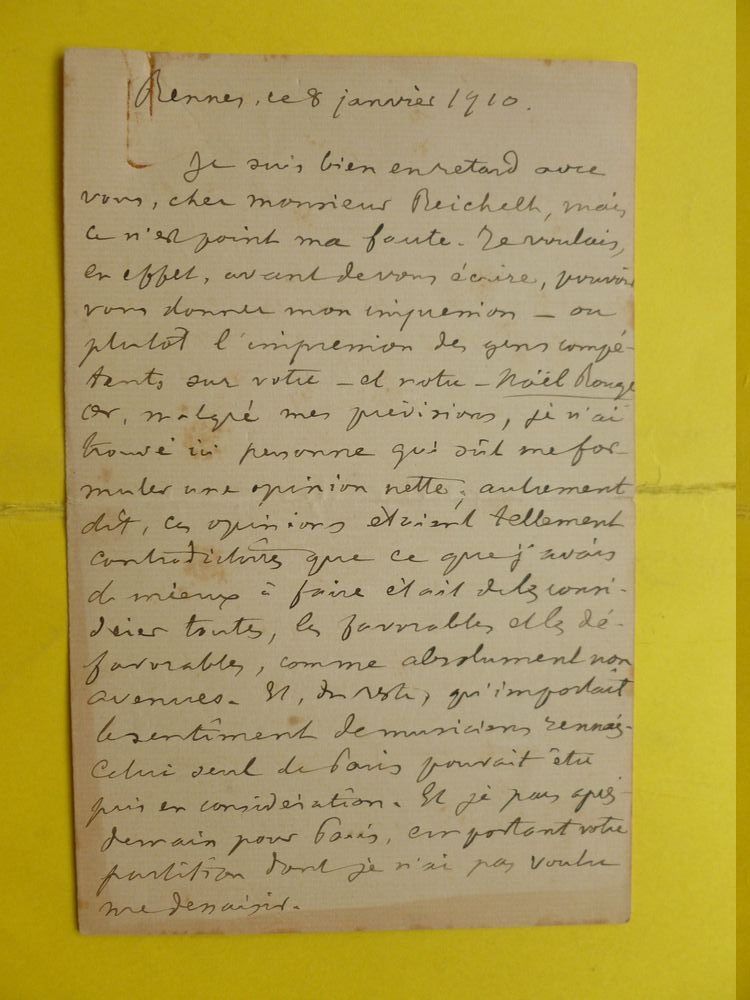 Rennes, ce 8 janvier 1910.
Je suis bien en retard avec
vous, cher monsieur Reichelt, mais
ce n'est point ma faute. Je voulais,
en effet, avant de vous écrire, pouvoir
vous donner mon impression — ou
plutôt l'impression des gens compé-
tents sur votre — et notre — Noël Rouge
Or, malgré mes prévisions, je n'ai
trouvé ici personne qui sût me for-
muler une opinion nette ; autrement
dit, ces opinions étaient tellement
contradictoires que ce que j'avais
de mieux à faire était de les consi-
dérer toutes, les favorables et les dé-
favorables, comme absolument non
avenues. Et, du reste, qu'importait
le sentiment de musiciens rennais.
Celui seul de Paris pouvait être
pris en considération. Et je pars après-
demain pour Paris, emportant votre
partition dont je n'ai pas voulu
me dessaisir.